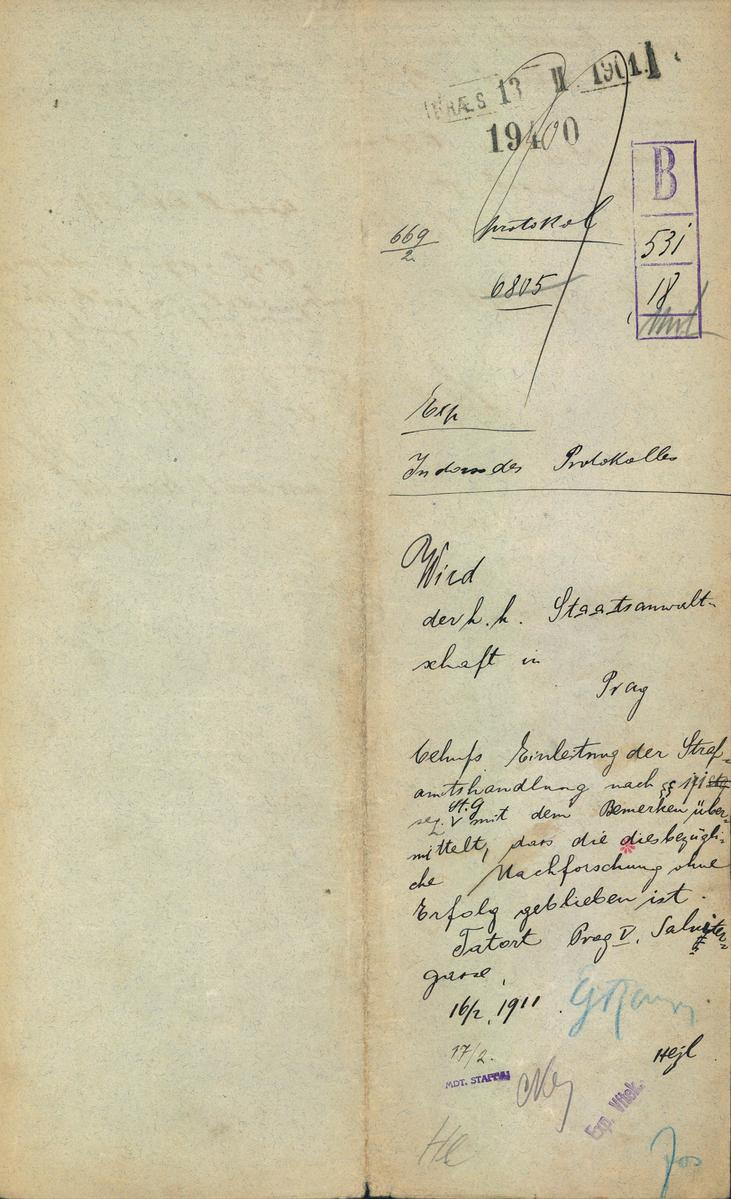 PRÆS 13 II 1911
19400
B
531
18
669
2
protokol
6805
Exp
In dorso des Protokolles
Wird
der k. k. Staatsanwalt-
schaft in
Prag
behufs Einleitung der Straf-
amtshandlung nach §§ 171
St. G
mit dem Bemerken über-
mittelt, dass die diesbezügli-
che Nachforschung ohne
Erfolg geblieben ist.
Tatort Prag V, Salniter-
gasse,
16/2 1911
17/2.
Hejl
MDT.
Exp. Vítek.